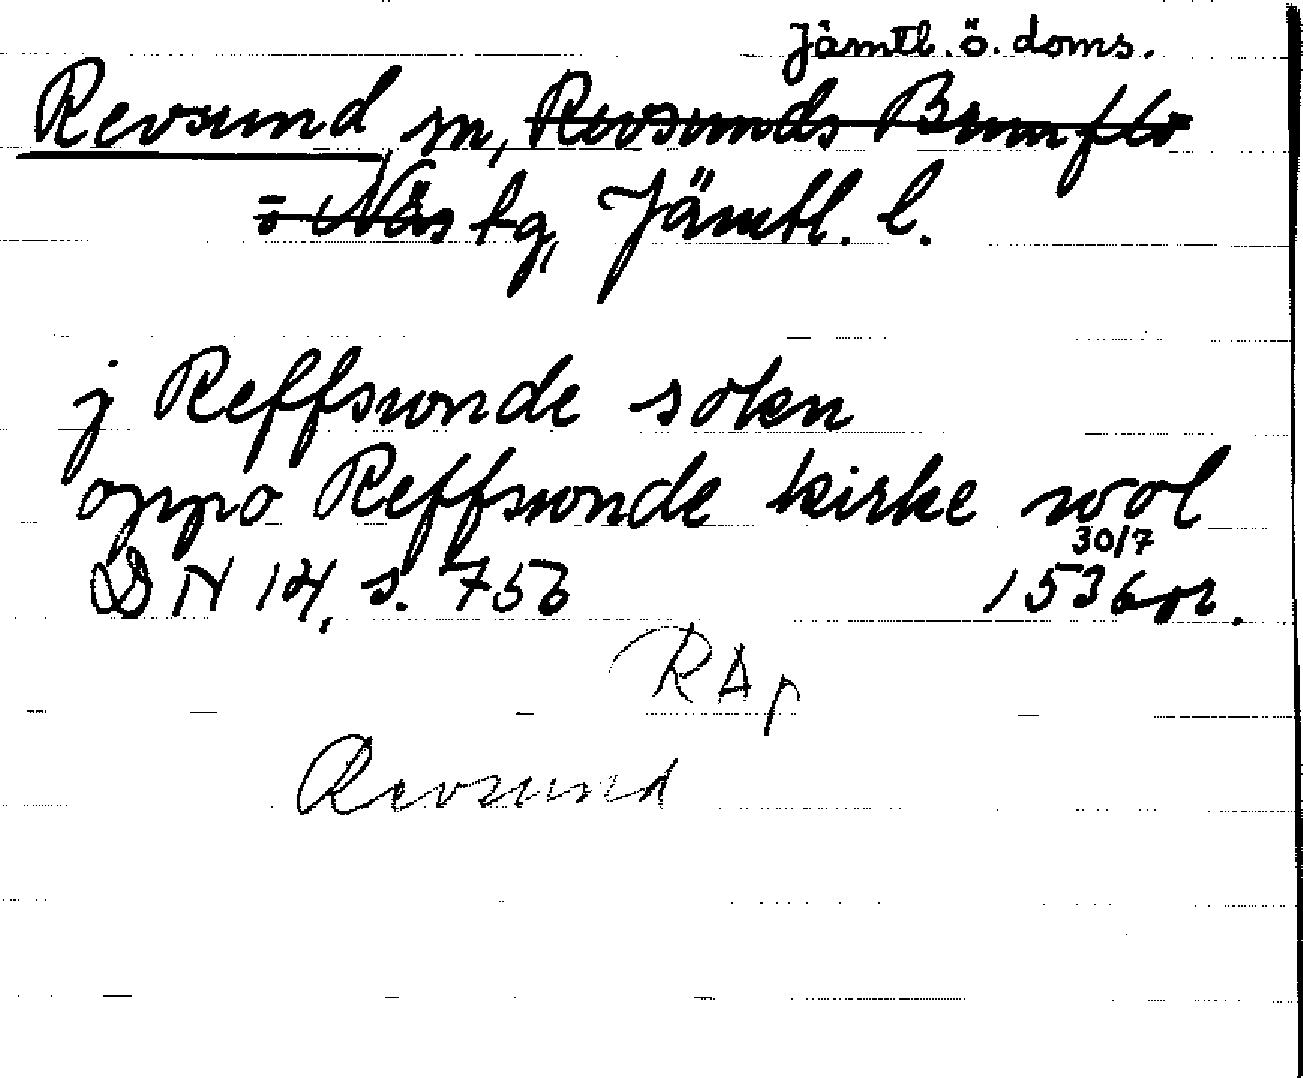 Jämtl. ö. doms.
Revsund, sn, Revsunds Brunflo
o Näs tg, Jämtl. l.
j Reffswnde sokn
oppo Reffswnde kirke wol
30/7
DN 14, s. 756 1536 or.
RAp
Revsund